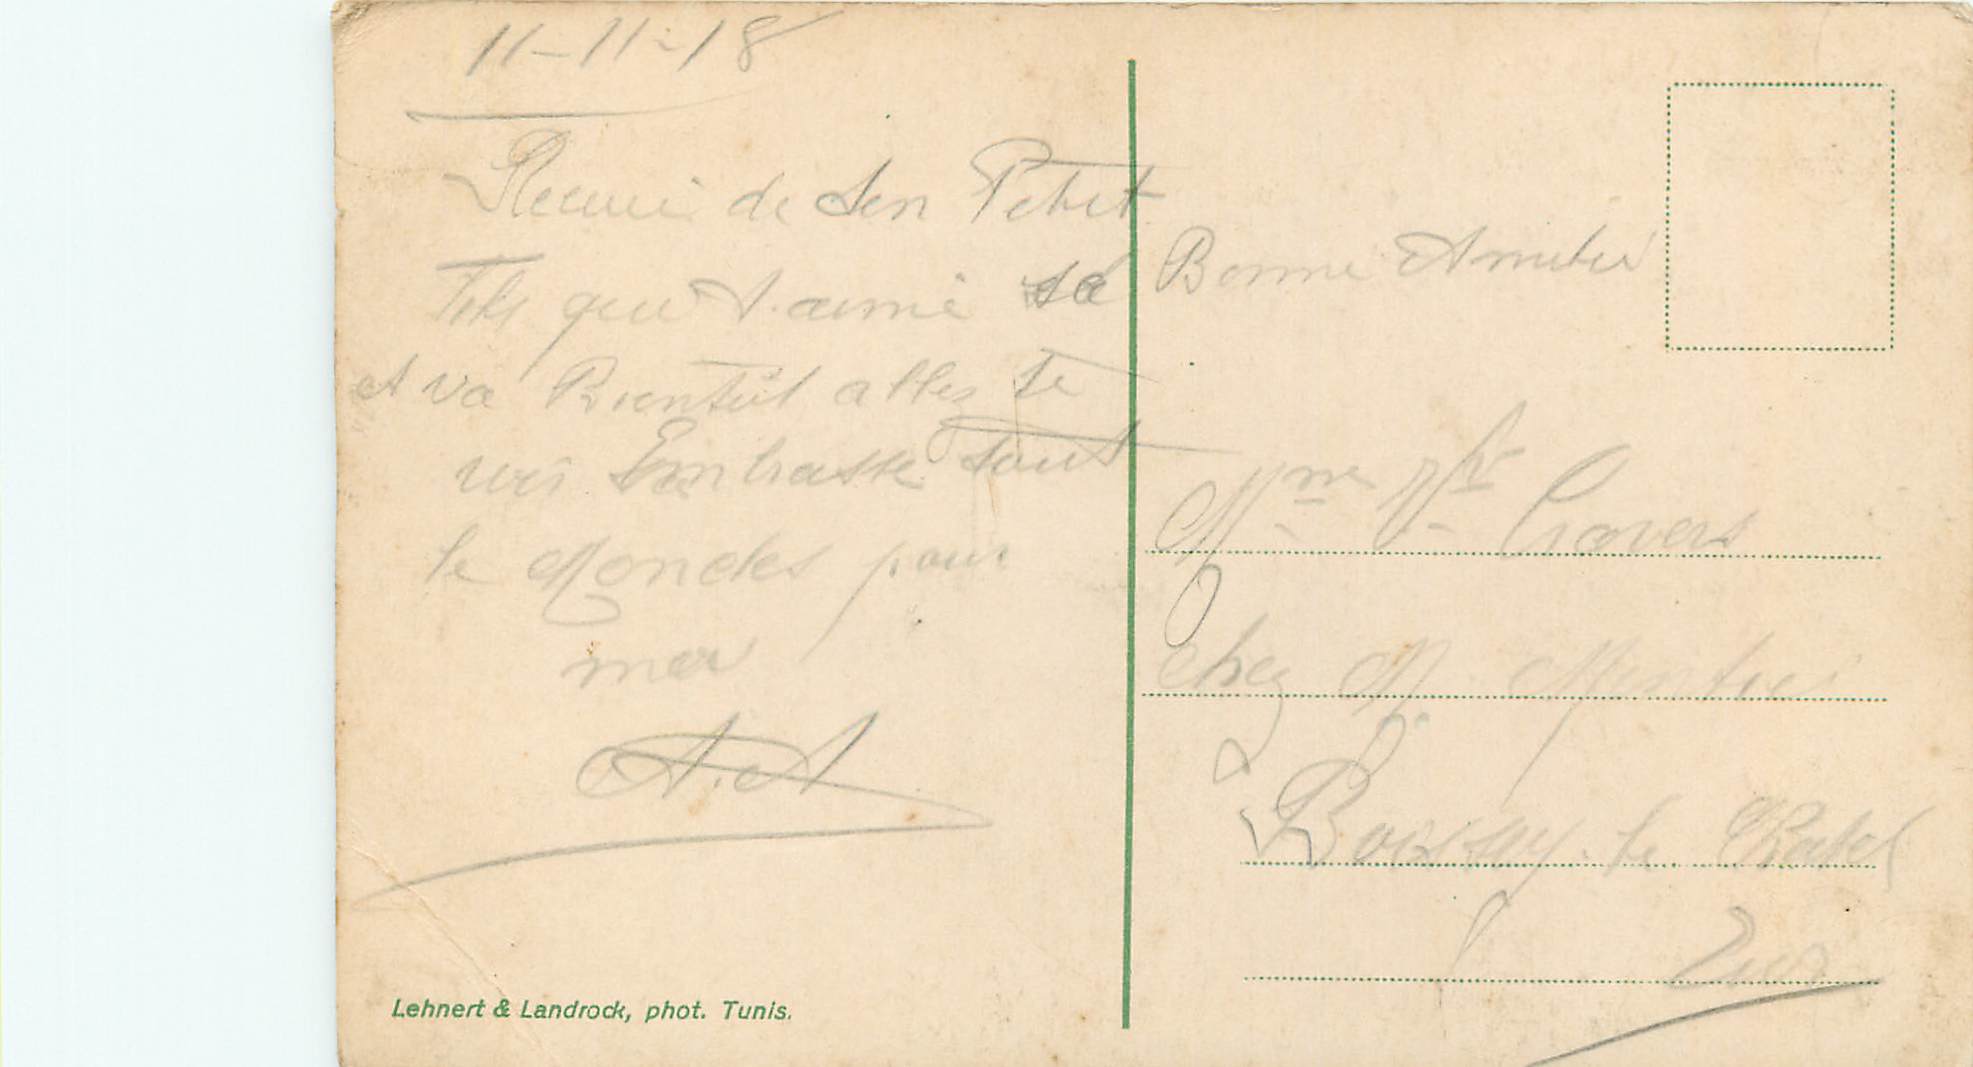 11-11-18
de ton Petit
Fils que t.aime
et va Bientôt aller te
voir Embrasse tout
le Mondes pour
moi
A.A
Bonne Amitié
Mme Vve
chez M.
Boissy. le Chatel
Lehnert & Landrock, phot. Tunis.